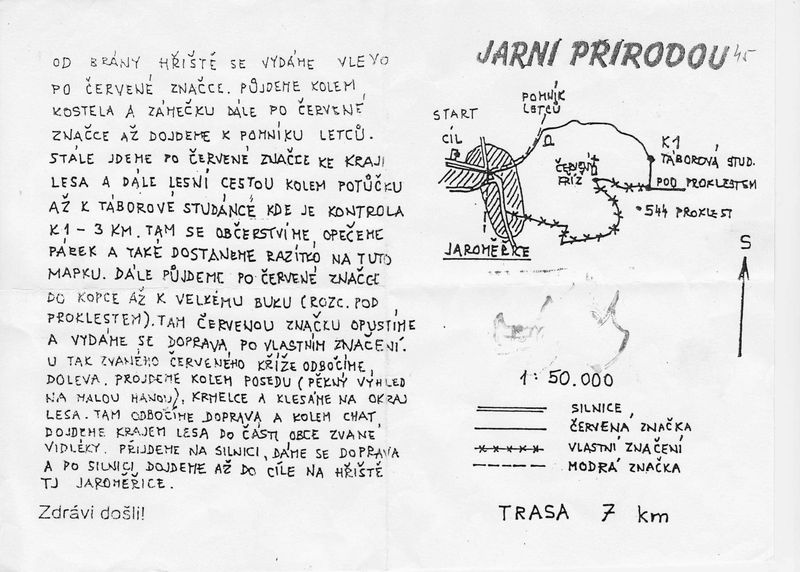 OD BRÁNY HŘIŠTĚ SE VYDÁME VLEVO
PO ČERVENÉ ZNAČCE. PŮJDEME KOLEM
KOSTELA A ZÁMEČKU DÁLE PO ČERVENÉ
ZNAČCE AŽ DOJDEME K POMNÍKU LETCŮ.
STÁLE JDEME PO ČERVENÉ ZNAČCE KE KRAJI
LESA A DÁLE LESNÍ CESTOU KOLEM POTŮČKU
AŽ K TÁBOROVÉ STUDÁNCE KDE JE KONTROLA
K1 - 3 KM. TAM SE OBČERSTVÍME, OPEČEME
PÁREK A TAKÉ DOSTANEME RAZÍTKO NA TUTO
MAPKU. DÁLE PŮJDEME PO ČERVENÉ ZNAČCE
DO KOPCE AŽ K VELKÉMU BUKU (ROZC. POD
PROKLESTEM). TAM ČERVENOU ZNAČKU OPUSTÍME
A VYDÁME SE DOPRAVA PO VLASTNÍM ZNAČENÍ.
U TAK ZVANÉHO ČERVENÉHO KŘÍŽE ODBOČÍME,
DOLEVA. PROJDEME KOLEM POSEDU (PĚKNÝ VÝHLED
NA MALOU HANOU), KRMELCE A KLESÁME NA OKRAJ
LESA. TAM ODBOČÍME DOPRAVA A KOLEM CHAT,
DOJDEME KRAJEM LESA DO ČÁSTI OBCE ZVANÉ
VIDLÉKY. PŘIJDEME NA SILNICI, DÁME SE DOPRAVA
A PO SILNICI DOJDEME AŽ DO CÍLE NA HŘIŠTĚ
TJ JAROMĚŘICE.
Zdrávi došli!
JARNÍ PŘÍRODOU 45
POMNÍK
LETCŮ
START
CÍL
K1
TÁBOROVÁ STUD.
ČERVENÝ
KŘÍŽ
POD PROKLESTEM
544 PROKLEST
JAROMĚŘICE
S
1:50.000
SILNICE
ČERVENÁ ZNAČKA
VLASTNÍ ZNAČENÍ
MODRÁ ZNAČKA
TRASA 7 km